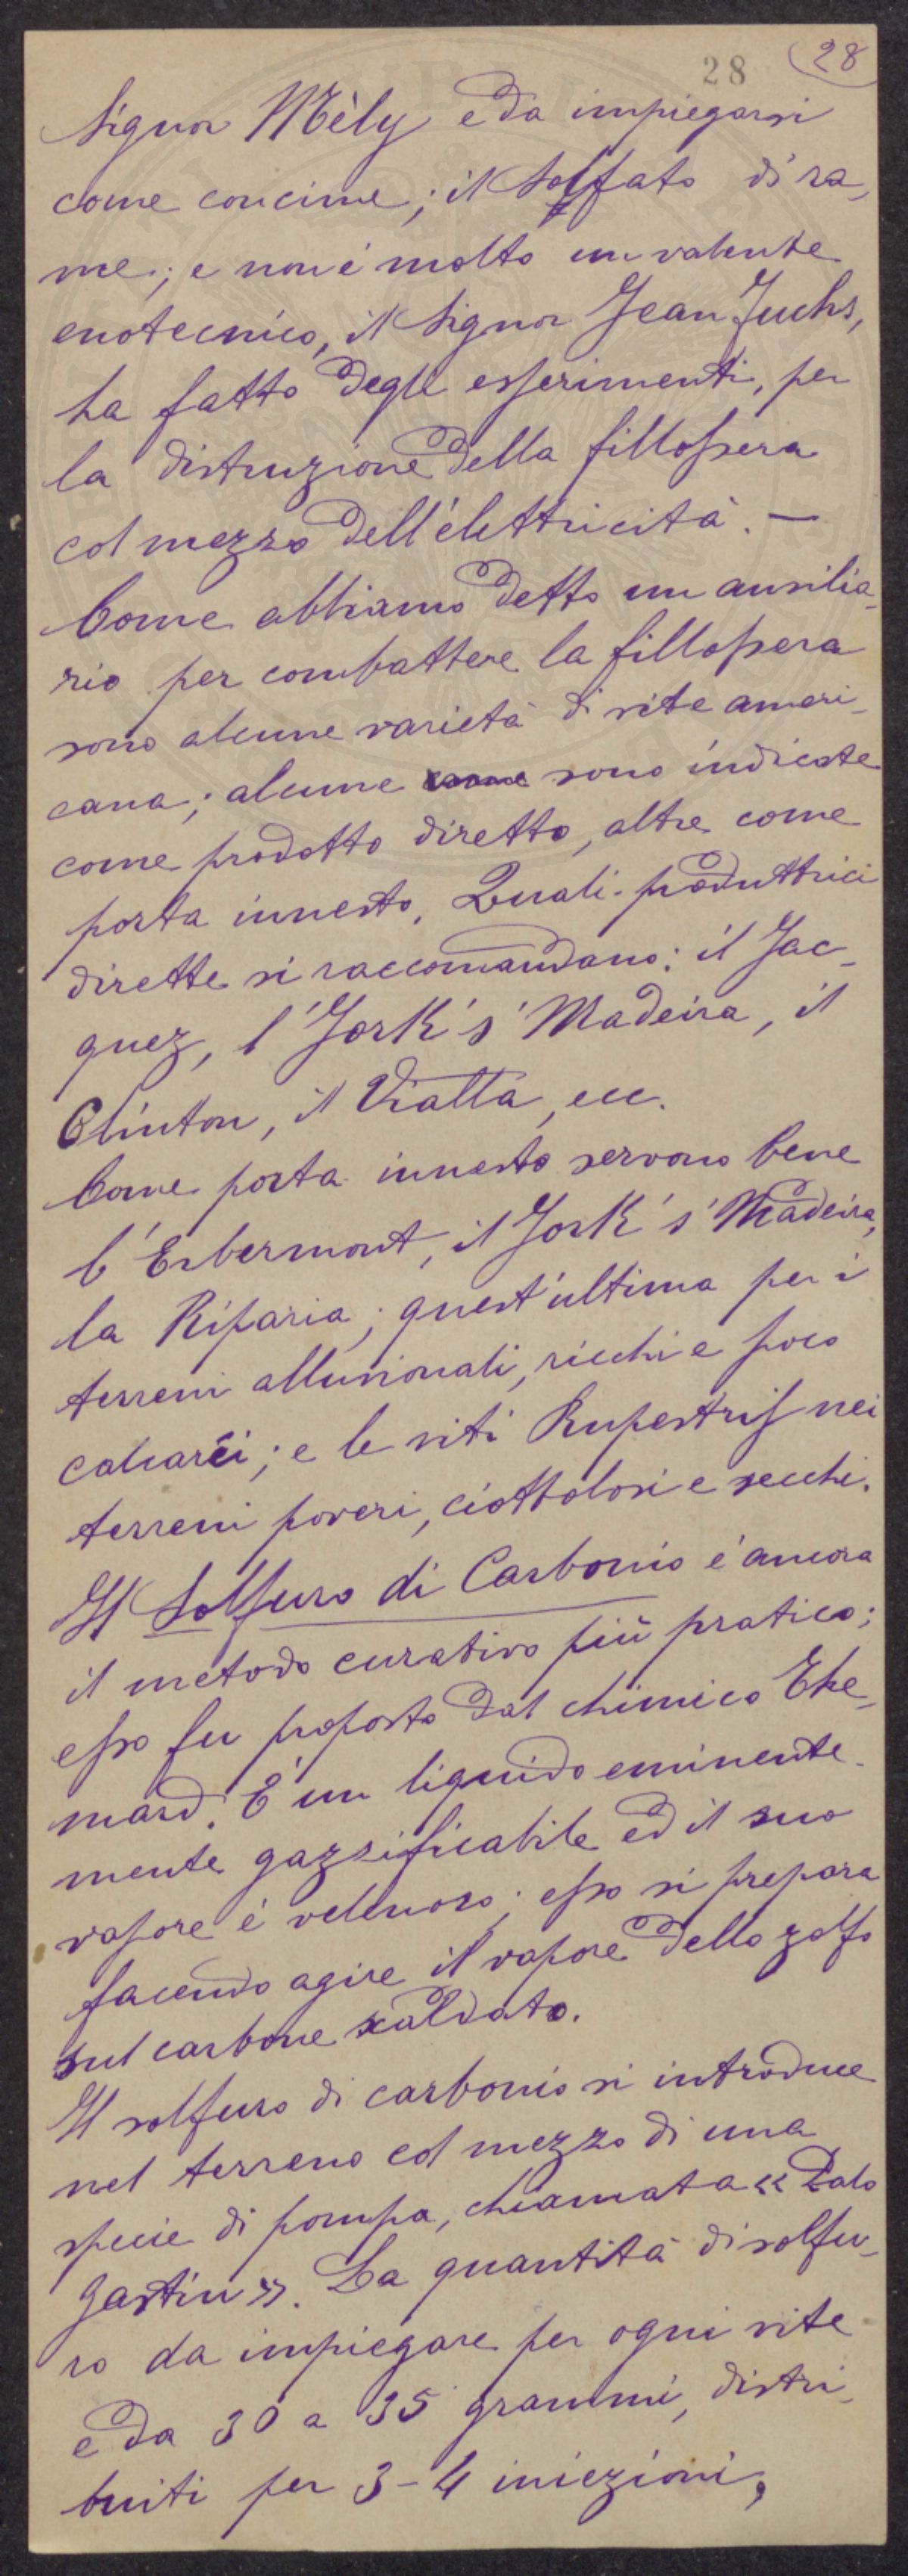 28 28
Signor Mèly e da impiegarsi
come concime; il Solfato di ra-
me; e non è molto un valente
enotecnico, il Signor Jean Fuchs,
ha fatto degli esperimenti, per
la distruzione della fillossera
col mezzo dell'élettricità. —
Come abbiamo detto un ausilia-
rio per combattere la fillossera
sono alcune varietà di vite ameri-
cana; alcune sono indicate
come prodotto diretto, altre come
porta innesto. Quali produttrici
dirette si raccomandano: il Jac-
quez, l'York's' Madeira, il
Clinton, il Vialla, ecc.
Come porta innesto servono bene
l'Erbermont, il York's' Madeira,
la Riparia; quest'ultima per i
terreni alluvionali, ricchi e poco
calcarei; e le viti Rupestris nei
terreni poveri, ciottolosi e secchi.
Il Solfuro di Carbonio è ancora
il metodo curativo più pratico;
esso fu proposto dal chimico The-
nard. È un liquido eminente-
mente gazzificabile ed il suo
vapore è velenoso; esso si prepara
facendo agire il vapore dello zolfo
sul carbone scaldato.
Il solfuro di carbonio si introduce
nel terreno col mezzo di una
specie di pompa, chiamata « Palo
gastin ». La quantità di solfu-
ro da impiegare per ogni vite
e da 30 a 35 grammi, distri-
buiti per 3-4 iniezioni,